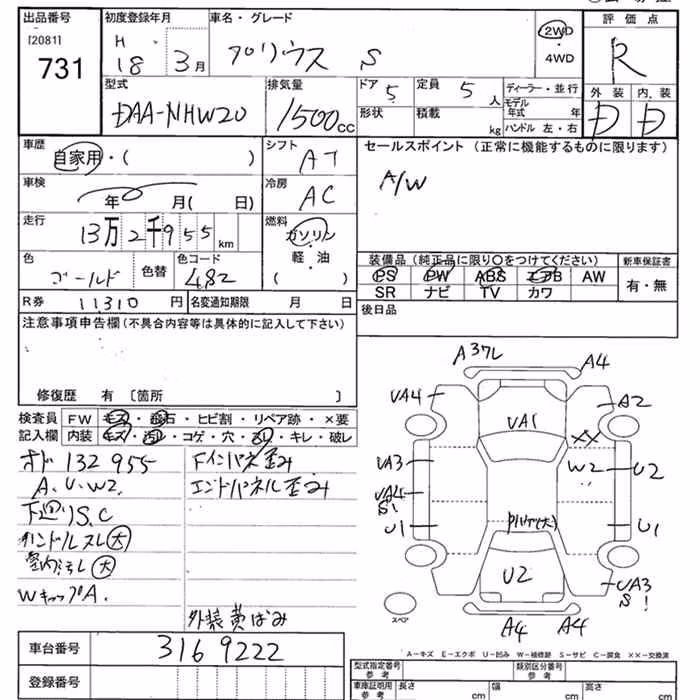 出品番号 初度登録年月 車名・グレード 評価点
[2081] H
731 18年 3月 プリウス S 2WD・4WD R
型式 排気量 ドア 5 定員 5人 ディーラー・並行 外装 内装
DAA-NHW20 1500cc 形状 積載 kg モデル年式 年 D D
ハンドル 左・右
車歴 シフト セールスポイント (正常に機能するものに限ります)
自家用・( ) AT A/W
車検 冷房
年 月( 日) AC
走行 燃料
13万2千955km ガソリン・軽・油 ( )
色 色替 色コード 装備品 (純正品に限り○をつけてください) 新車保証書
ゴールド 482 PS PW ABS エアB AW 有・無
SR ナビ TV カワ
R券 11310円 名変通知期限 月 日 後日品
注意事項申告欄(不具合内容等は具体的に記入して下さい)
修復歴 有 〔箇所 〕
検査員 FW キズ・飛石・ヒビ割・リペア跡・×要
記入欄 内装 キズ・汚れ・コゲ・穴・スレ・キレ・破レ
オド 132955 Fインパネ歪み
A、U、W2. エンドパネル歪み
下廻りS.C
ハンドルスレ(大)
室内汚レ(大)
WキャップA.
外装黄ばみ
車台番号 3169222
登録番号
A37L A4
UA4 UA1 A2
XX
UA3 W2 U2
UA4
S!
U1 U1
U2 UA3
S!
スペア A4 A4
A-キズ E-エクボ U-凹み W-補修跡 S-サビ C-腐食 XX-交換済
型式指定番号 参考 類別区分番号 参考
車庫証明用 参考 長さ cm 幅 cm 高さ cm